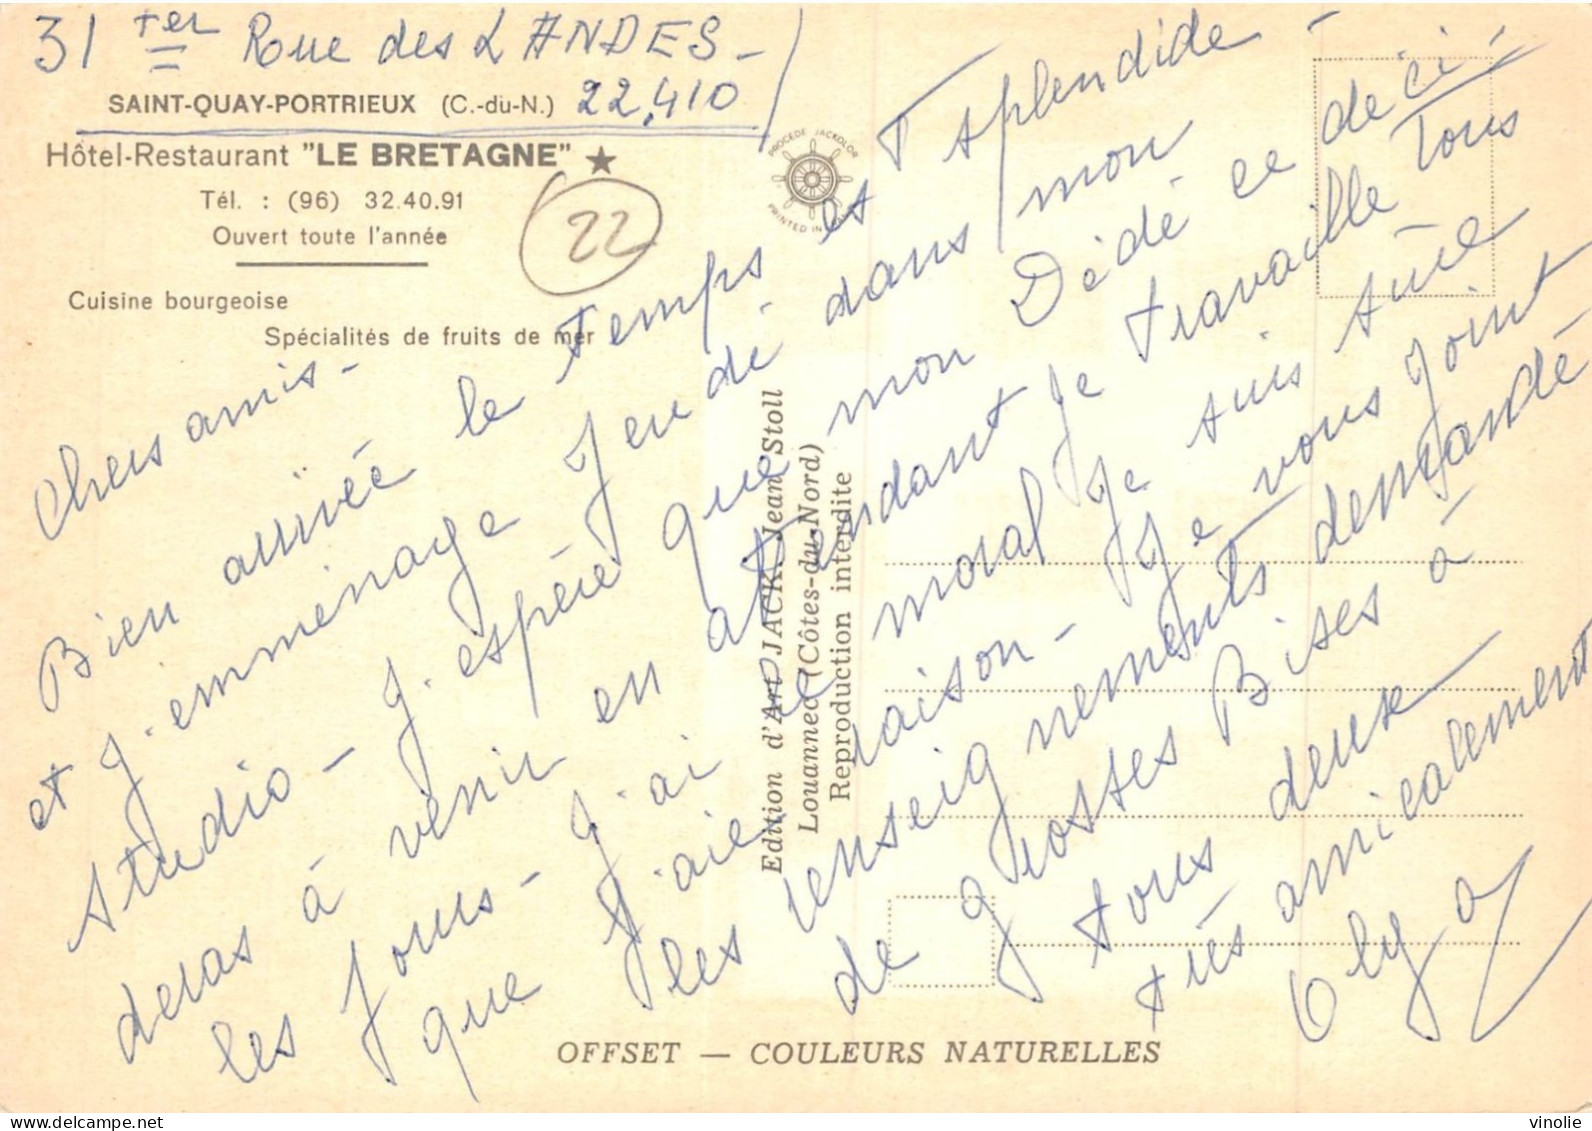 31 Ter Rue des LANDES -
SAINT-QUAY-PORTRIEUX (C.-du-N.) 22.410
Hôtel-Restaurant "LE BRETAGNE" ★
Tél. : (96) 32.40.91
Ouvert toute l'année
22
Cuisine bourgeoise
Spécialités de fruits de mer
PROCEDE JACKOLOR
PRINTED IN
Chers amis -
Bien arrivée le temps est splendide -
et J. emménage Jeudi dans mon
studio - J. espère que mon Dédé ce
deras à venir en attendant Je travaille tous
les Jours - J'ai le moral Je suis sûre
que J'aie raison - Je vous Joint
les renseignements demandé
de Grosses Bises à
tous deux
très amicalement
Olga
Edition d'Art JACK. Jean Stoll
Louannec (Côtes-du-Nord)
Reproduction interdite
OFFSET — COULEURS NATURELLES
delcampe.net
vinolie